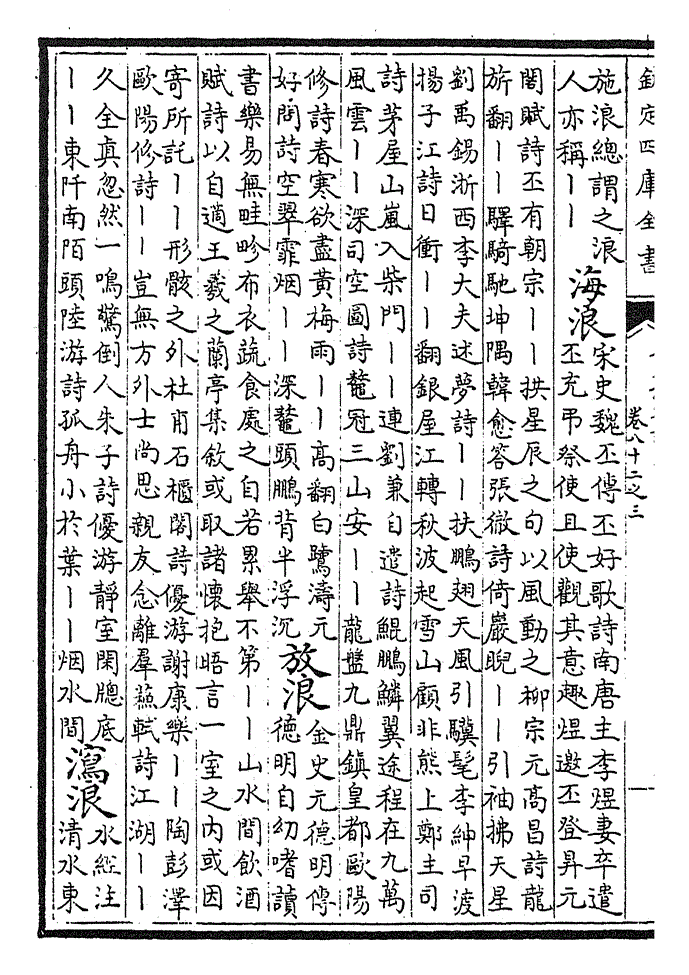 欽定四庫全書
卷八十二之三
施浪總謂之浪
人亦稱丨丨
海浪
宋史魏丕傳丕好歌詩南唐主李煜妻卒遣
丕充弔祭使且使觀其意趣煜邀丕登昇元
閣賦詩丕有朝宗丨丨拱星辰之句以風動之柳宗元高昌詩龍
旂翻丨丨驛騎馳坤隅韓愈答張徹詩倚巖睨丨丨引袖拂天星
劉禹錫浙西李大夫述夢詩丨丨扶鵬翅天風引驥髦李紳早渡
揚子江詩日衝丨丨翻銀屋江轉秋波起雪山顧非熊上鄭主司
詩茅屋山嵐入柴門丨丨連劉兼自遣詩鯤鵬鱗翼途程在九萬
風雲丨丨深司空圖詩鼇冠三山安丨丨龍盤九鼎鎮皇都歐陽
修詩春寒欲盡黃梅雨丨丨高翻白鷺濤元
好問詩空翠霏烟丨丨深鼇頭鵬背半浮沉
放浪
金史元德明傳
德明自幼嗜讀
書樂易無畦畛布衣蔬食處之自若累舉不第丨丨山水間飲酒
賦詩以自適王羲之蘭亭集敘或取諸懷抱晤言一室之內或因
寄所託丨丨形骸之外杜甫石櫃閣詩優游謝康樂丨丨陶彭澤
歐陽修詩丨丨豈無方外士尚思親友念離羣蘇軾詩江湖丨丨
久全真忽然一鳴驚倒人朱子詩優游靜室閑牕底
丨丨東阡南陌頭陸游詩孤舟小於葉丨丨烟水間
瀉浪
水經注
清水東